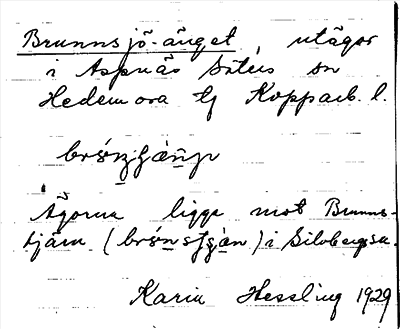 Brunnsjö-änget, utägor
i Aspnäs Säters sn
Hedemora tg Kopparb. l.
Ägorna ligga mot Brunns-
tjärn i Silvbergs sn.
Karin Hessling 1929